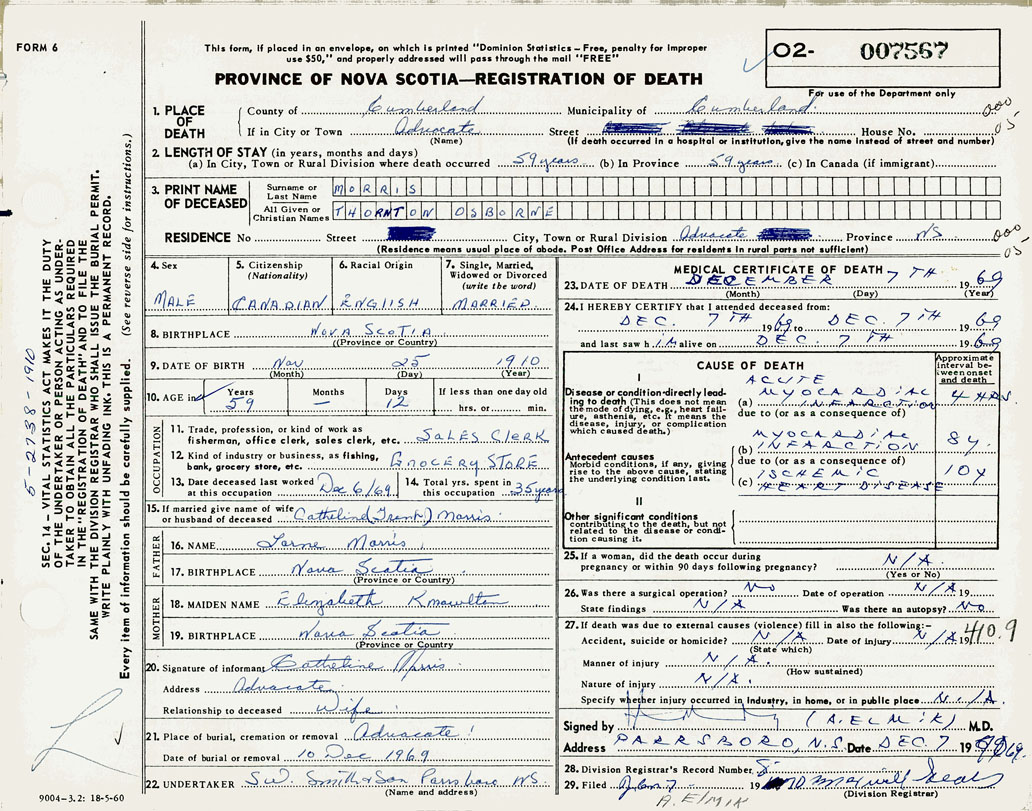 FORM 6
This form, if placed in an envelope, on which is printed "Dominion Statistics – Free, penalty for improper
use $50," and properly addressed will pass through the mail "FREE"
PROVINCE OF NOVA SCOTIA—REGISTRATION OF DEATH
02- 007567
For use of the Department only
1. PLACE OF DEATH County of Cumberland Municipality of Cumberland
If in City or Town Advocate Street House No.
(Name) (If death occurred in a hospital or institution, give the name instead of street and number)
000
05
2. LENGTH OF STAY (in years, months and days)
(a) In City, Town or Rural Division where death occurred 59 years (b) In Province 59 years (c) In Canada (if immigrant)
3. PRINT NAME OF DECEASED Surname or Last Name MORRIS
All Given or Christian Names THORNTON OSBORNE
RESIDENCE No Street City, Town or Rural Division Advocate Province NS
(Residence means usual place of abode. Post Office Address for residents in rural parts not sufficient)
000
05
4. Sex MALE
5. Citizenship (Nationality) CANADIAN
6. Racial Origin ENGLISH
7. Single, Married, Widowed or Divorced (write the word) MARRIED
8. BIRTHPLACE NOVA SCOTIA
(Province or Country)
9. DATE OF BIRTH Nov 25 1910
(Month) (Day) (Year)
10. AGE in Years 59 Months — Days 12 If less than one day old hrs. or min.
OCCUPATION
11. Trade, profession, or kind of work as fisherman, office clerk, sales clerk, etc. SALES CLERK
12. Kind of industry or business, as fishing, bank, grocery store, etc. GROCERY STORE
13. Date deceased last worked at this occupation Dec 6/69
14. Total yrs. spent in this occupation 35 years
15. If married give name of wife or husband of deceased Catheline (Grant) Morris
FATHER
16. NAME Lorne Morris
17. BIRTHPLACE Nova Scotia
(Province or Country)
MOTHER
18. MAIDEN NAME Elizabeth Knowlton
19. BIRTHPLACE Nova Scotia
(Province or Country
20. Signature of informant Catheline Morris
Address Advocate
Relationship to deceased Wife
21. Place of burial, cremation or removal Advocate
Date of burial or removal 10 Dec 1969
22. UNDERTAKER Smith & Son Parrsboro NS.
(Name and address)
MEDICAL CERTIFICATE OF DEATH
23. DATE OF DEATH DECEMBER 7TH 1969
(Month) (Day) (Year)
24. I HEREBY CERTIFY that I attended deceased from:
DEC. 7TH 1969 to DEC. 7TH 1969
and last saw h IM alive on DEC. 7TH 1969
CAUSE OF DEATH
Approximate interval between onset and death
I
Disease or condition directly leading to death (This does not mean the mode of dying, e.g., heart failure, asthenia, etc. It means the disease, injury, or complication which caused death.)
(a) ACUTE MYOCARDIAL INFARCTION 4 HRS.
due to (or as a consequence of)
Antecedent causes
Morbid conditions, if any, giving rise to the above cause, stating the underlying condition last.
(b) MYOCARDIAC INFARCTION 8y.
due to (or as a consequence of)
(c) ISCHEMIC HEART DISEASE 10y
II
Other significant conditions contributing to the death, but not related to the disease or condition causing it.
25. If a woman, did the death occur during pregnancy or within 90 days following pregnancy? N/A.
(Yes or No)
26. Was there a surgical operation? No Date of operation N/A 19
State findings N/A Was there an autopsy? No
27. If death was due to external causes (violence) fill in also the following:–
Accident, suicide or homicide? N/A Date of injury N/A 19
(State which)
410.9
Manner of injury N/A.
(How sustained)
Nature of injury N/A.
Specify whether injury occurred in industry, in home, or in public place N./A.
Signed by (A. ELMIK) M.D.
Address PARRSBORO, N.S. Date DEC. 7 1969
28. Division Registrar's Record Number
29. Filed Jan 7 19
(Division Registrar)
A. ElMIK
SEC. 14 – VITAL STATISTICS ACT MAKES IT THE DUTY
OF THE UNDERTAKER OR PERSON ACTING AS UNDER-
TAKER TO OBTAIN ALL THE PARTICULARS REQUIRED
IN THE "REGISTRATION OF DEATH" AND TO FILE THE
SAME WITH THE DIVISION REGISTRAR WHO SHALL ISSUE THE BURIAL PERMIT.
WRITE PLAINLY WITH UNFADING INK. THIS IS A PERMANENT RECORD.
Every item of information should be carefully supplied. (See reverse side for instructions.)
5-2738-1910
9004–3.2: 18-5-60